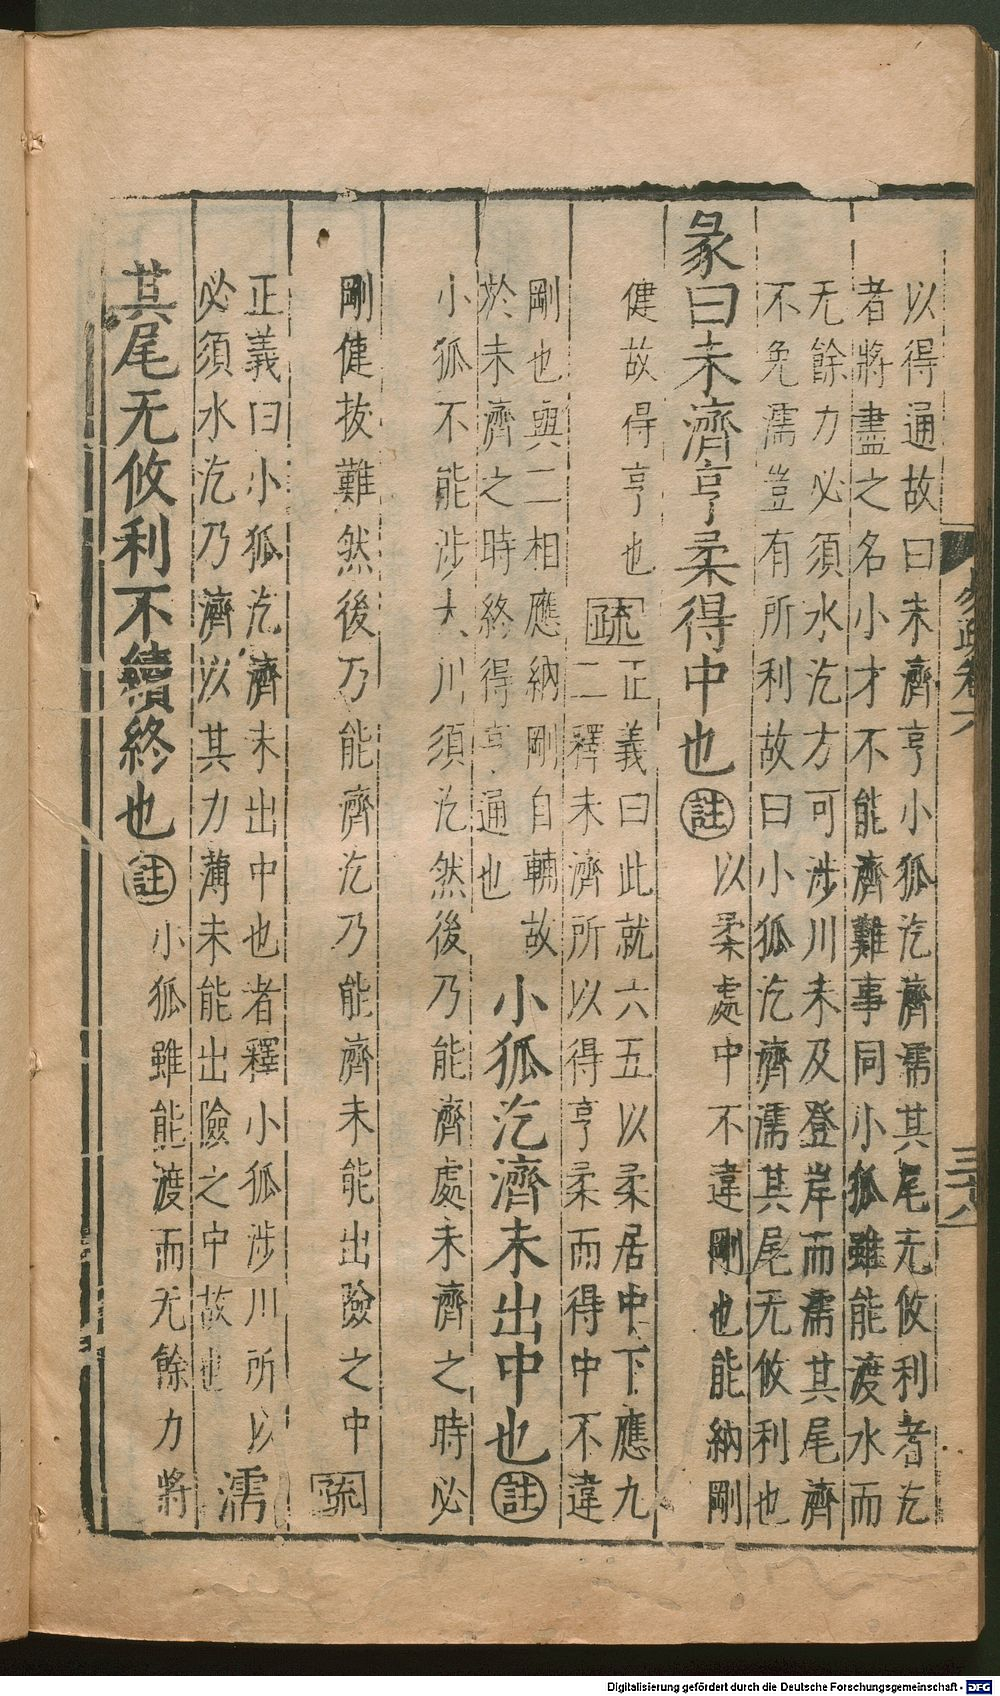 以得通故曰未濟亨小狐汔濟濡其尾无攸利者汔
者將盡之名小才不能濟難事同小狐雖能渡水而
无餘力必須水汔方可涉川未及登岸而濡其尾濟
不免濡豈有所利故曰小狐汔濟濡其尾无攸利也
彖曰未濟亨柔得中也註以柔處中不違剛也能納剛
健故得亨也疏正義曰此就六五以柔居中下應九
二釋未濟所以得亨柔而得中不違
剛也與二相應納剛自輔故
於未濟之時終得亨通也
小狐汔濟未出中也註
小狐不能涉大川須汔然後乃能濟處未濟之時必
剛健拔難然後乃能濟汔乃能濟未能出險之中疏
正義曰小狐汔濟未出中也者釋小狐涉川所以
必須水汔乃濟以其力薄未能出險之中故也
濡
其尾无攸利不續終也註小狐雖能渡而无餘力將
易疏卷六
三六八
Digitalisierung gefördert durch die Deutsche Forschungsgemeinschaft - DFG